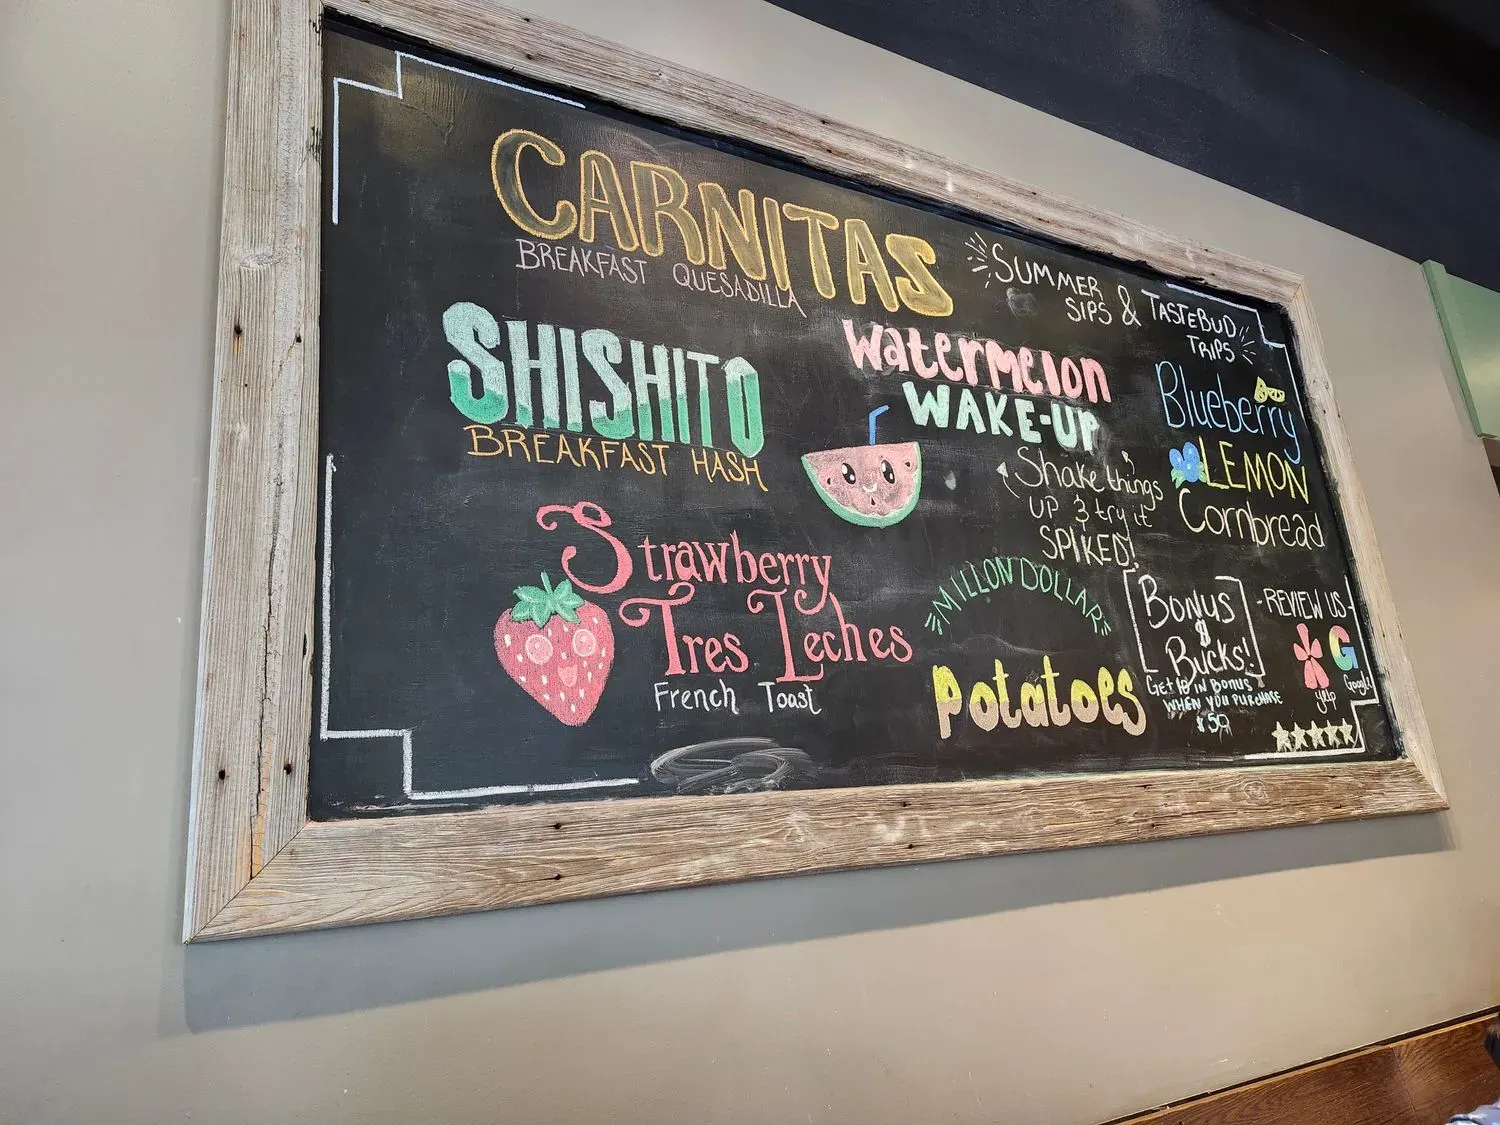 CARNITAS
BREAKFAST QUESADILLA
SHISHITO
BREAKFAST HASH
Strawberry
Tres Leches
French Toast
SUMMER
SIPS & TASTEBUD
TRIPS
Watermelon
WAKE-UP
Shake things
UP & try it
SPIKED!
Blueberry
LEMON
Cornbread
MILLON DOLLAR
Potatoes
BONUS
$
BUCKS!
GET 10 IN BONUS
WHEN YOU PURCHASE
$50
-REVIEW US-
yelp
G
Google